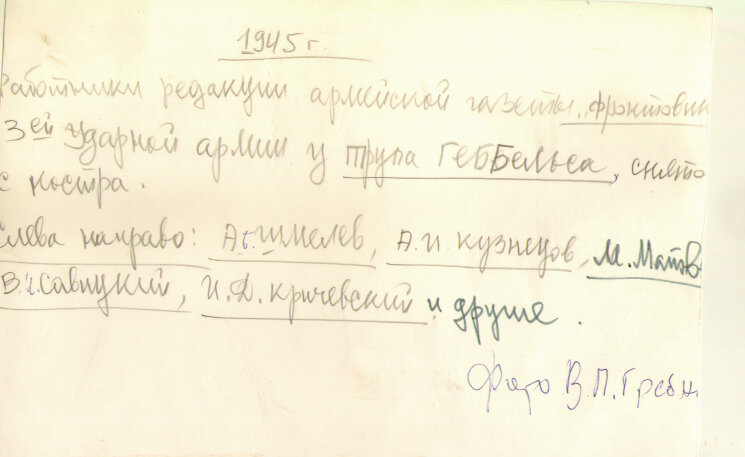 1945 г.
Работники редакции армейской газеты „Фронтовик
3ей Ударной армии у трупа Геббельса, снято
с костра.
Слева направо: А.Г. Шмелев, А.И. Кузнецов, М. Матв
В.И. Савицкий, И.Д. Кричевский и другие.
Фото В.П. Гребн